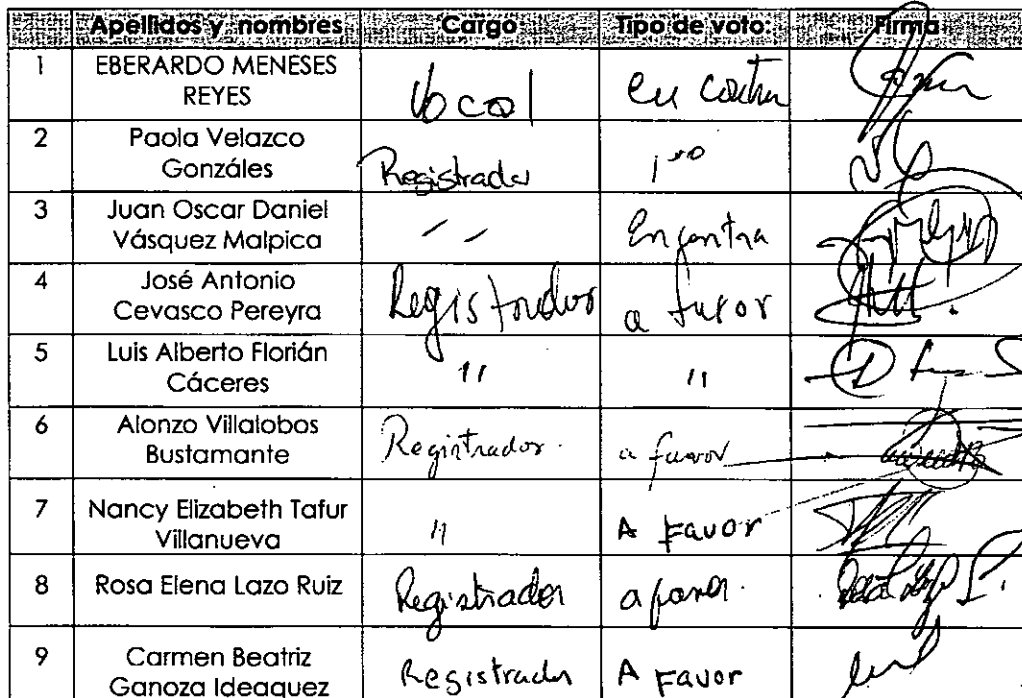 Apellidos y nombres Cargo Tipo de voto: Firma
1 EBERARDO MENESES REYES Vocal en contra
2 Paola Velazco Gonzáles Registrador
3 Juan Oscar Daniel Vásquez Malpica " En contra
4 José Antonio Cevasco Pereyra Registrador a favor
5 Luis Alberto Florián Cáceres " "
6 Alonzo Villalobos Bustamante Registrador. a favor
7 Nancy Elizabeth Tafur Villanueva " A Favor
8 Rosa Elena Lazo Ruiz Registrador a favor.
9 Carmen Beatriz Ganoza Ideaquez Registrador A Favor